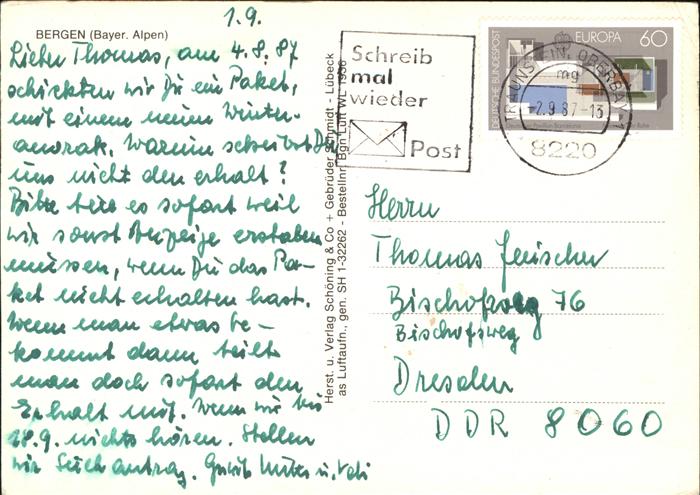 1.9.
BERGEN (Bayer. Alpen)
Lieber Thomas, am 4.8.87
schickten wir Dir ein Paket,
mit einem neuen Winter-
anorak. Warum schreibst Du
uns nicht den erhalt?
Bitte tue es sofort weil
wir sonst Anzeige erstatten
müssen, wenn Du das Pa-
ket nicht erhalten hast.
Wenn man etwas be-
kommt dann teilt
man doch sofort den
Erhalt mit. Wenn wir bis
18.9. nichts hören. Stellen
wir Suchantrag. Gruß u. Vati
Herst. u. Verlag Schöning & Co + Gebrüder Schmidt - Lübeck
as Luftaufn., gen. SH 1-32262 - Bestellnr. Bgn Luft WL 1936
Schreib
mal
wieder
Post
DEUTSCHE BUNDESPOST
EUROPA 60
TRAUNSTEIN, OBERBAY
mg
-2.9.87-15
8220
Herrn
Thomas Jenischer
Bischofsweg 76
Bischofsweg
Dresden
DDR 8060